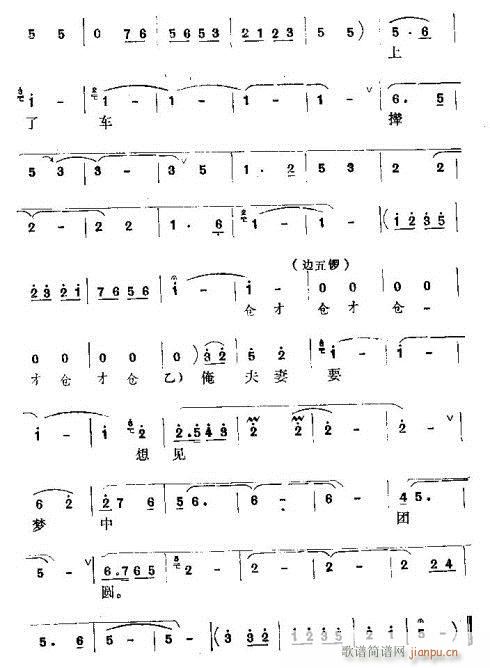 5 5 | 0 76 | 5653 | 2123 | 5 5 ) | 5·6 |
上
1 - | 1 - | 1 - | 1 - | 1 - ˅ | 6· 5 |
了 车 撵
5 3 | 3 - | 3 5 | 1· 2 | 5 3 | 2 2 |
2 - | 2 2 | 1· 6 | 1 - | 1 - | ( 1235 |
(边五锣)
2321 | 7656 | 1 - | 1 - | 0 0 | 0 0 |
仓才 仓才 仓-
0 0 | 0 0 | 0 ) 32 | 5 2 | 3 - | 1 - |
才仓 才仓 乙) 俺 夫妻 要
1 - | 1 2 | 2·543 | 2 2 | 2 - | 2 - ˅ |
想 见
6 2 | 27 6 | 56· | 6 - | 6 - | 45· |
梦 中 团
5 - ˅ | 6·765 | 2 - | 2 - | 2 - | 2 24 |
圆。
5· 6 | 5 - | 5 - | ( 3 332 | 1235 | 2 - ) ‖
歌谱简谱网
jianpu.cn